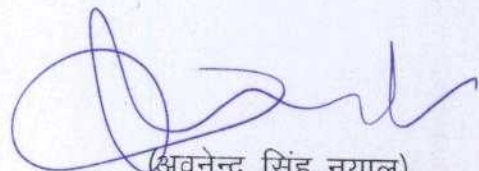 (अवनेन्द्र सिंह नयाल)